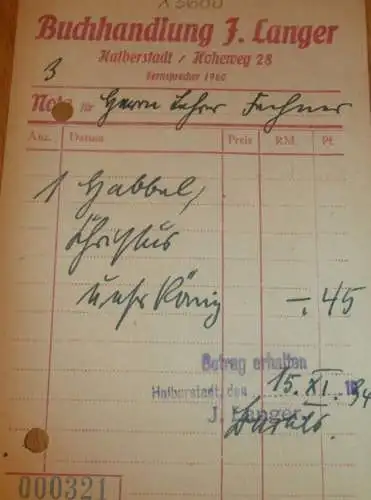 X 3600
Buchhandlung J. Langer
Halberstadt / Hoheweg 28
Fernsprecher 1960
3
Nota für Herrn Lehrer Fechner
Anz. Datum Preis RM Pf.
1 Habbel,
Christus
unser König -.45
Betrag erhalten
Halberstadt, den 15. XI. 1934
J. Langer
000321